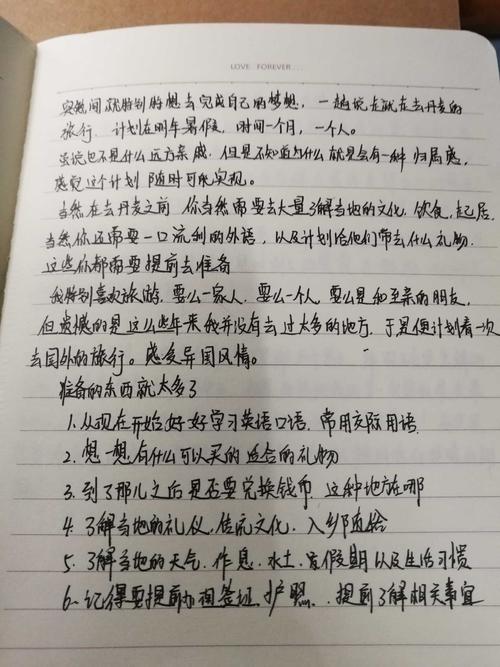 LOVE FOREVER...
突然间就特别特想去完成自己的梦想,一趟说走就走去丹麦的
旅行、计划在明年暑假,时间一个月,一个人。
虽说也不是什么远方亲戚,但是不知道为什么就是会有一种归属感,
感觉这个计划随时可能实现。
当然在去丹麦之前 你当然需要去大量了解当地的文化,饮食,起居,
当然你还需要一口流利的外语,以及计划给他们带去什么礼物
这些你都需要提前去准备
我特别喜欢旅游,要么一家人,要么一个人,要么是和至亲的朋友,
但遗憾的是这么些年来我并没有去过太多的地方,于是便计划着一次
去国外的旅行。感受异国风情。
准备的东西就太多了
1.从现在开始,好好学习英语口语,常用交际用语.
2.想一想有什么可以买的适合的礼物
3.到了那儿之后是否要兑换钱币,这种地方在哪
4.了解当地的礼仪,传统文化,入乡随俗
5.了解当地的天气.作息.水土.
假期以及生活习惯
6.记得要提前办理签证,护照,提前了解相关事宜